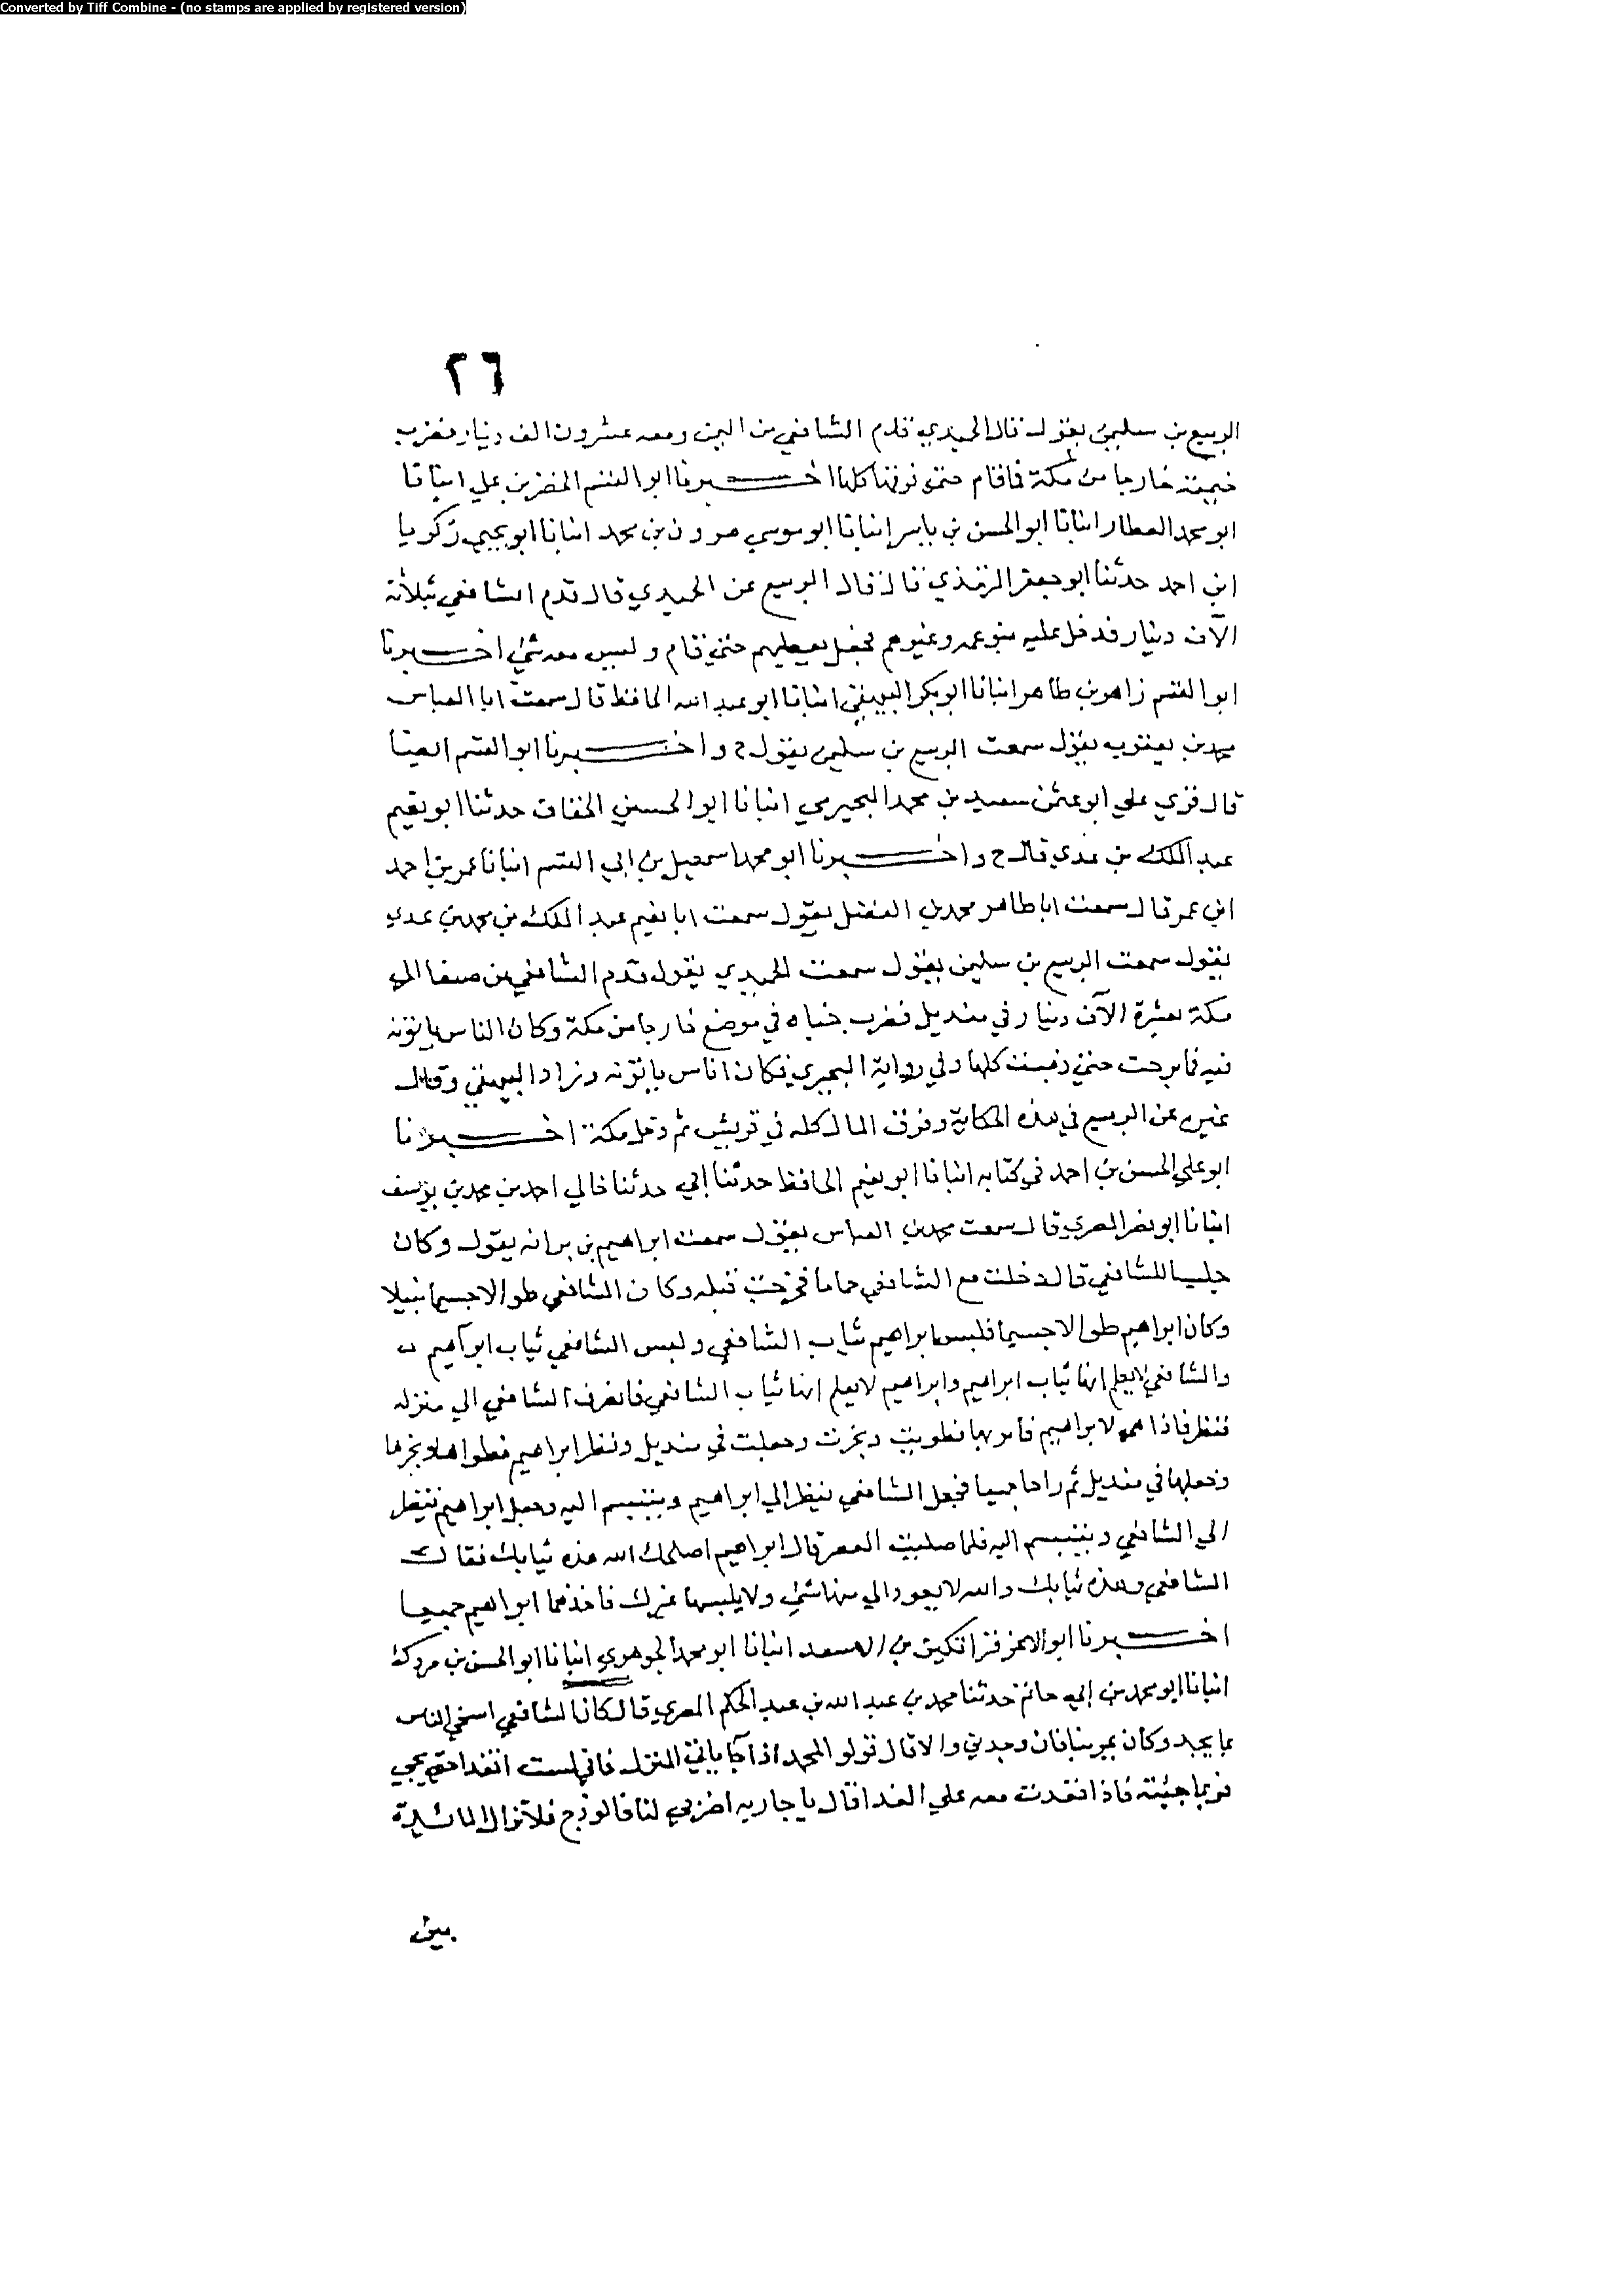 Converted by Tiff Combine - (no stamps are applied by registered version)
٢٦
الربيع بن سليمن يقول قال الحميدي قدم الشافعي من اليمن ومعه عشرون الف دينار فضرب
خيمته خارجا من مكة فما قام حتى فرقها كلها اخبرنا ابو القسم الخضر بن علي انبانا
ابو محمد العطار انبانا ابو الحسن بن ياسر انبانا ابو موسي هرون بن محمد انبانا ابو يحيى زكريا
ابن احمد حدثنا ابو جعفر الترمذي قال قال الربيع عن الحميدي قال قدم الشافعي بثلاثة
الآف دينار فدخل عليه بنو عمه وغيرهم فجعل يعطيهم حتي قام وليس معه شئ اخبرنا
ابو القسم زاهر بن طاهر انبانا ابو بكر البيهقي انبانا ابو عبد الله الحافظ قال سمعت ابا العباس
محمد بن يعقوب يقول سمعت الربيع بن سليمن يقول ح واخبرنا ابو القسم ايضا
قال قري علي ابو عثمن سعيد بن محمد البحيرمي انبانا ابو الحسين الخفاف حدثنا ابو نعيم
عبد الملك بن عدي قال ح واخبرنا ابو محمد اسمعيل بن ابي القسم انبانا عمر بن احمد
ابن عمر قال سمعت ابا طاهر محمد بن الفضل يقول سمعت ابا نعيم عبد الملك بن محمد بن عدي
يقول سمعت الربيع بن سليمن يقول سمعت الحميدي يقول قدم الشافعي من صنعا الي
مكة بعشرة الآف دينار في منديل فضرب خباه في موضع خارجا من مكة وكان الناس ياتونه
فيه فما برحت حتي ذهبت كلها وفي رواية البحيري فكان اناس ياتونه وزاد البيهقي وقال
غيره عن الربيع في هذه الحكاية وفرق المال كله في قريش ثم دخل مكة اخبرنا
ابو علي الحسن بن احمد في كتابه انبانا ابو نعيم الحافظ حدثنا ابي حدثنا خالي احمد بن محمد بن يوسف
انبانا ابو نصر المصري قال سمعت محمد بن العباس يقول سمعت ابراهيم بن برانه يقول وكان
جليسا للشافعي قال دخلت مع الشافعي حماما فخرجت قبله وكان الشافعي طوالا جسيما نبيلا
وكان ابراهيم طوالا جسيما فلبس ابراهيم ثياب الشافعي ولبس الشافعي ثياب ابراهيم
والشافعي لا يعلم انها ثياب ابراهيم وابراهيم لا يعلم انها ثياب الشافعي فانصرف الشافعي الي منزله
فنظر فاذا هي لابراهيم فامر بها فطويت وبخرت وجعلت في منديل ونظر ابراهيم فطواها وبخرها
وجعلها في منديل ثم راحا جميعا فجعل الشافعي ينظر الي ابراهيم ويتبسم اليه وجعل ابراهيم ينظر
الي الشافعي ويتبسم اليه فلما صليت العصر قال ابراهيم اصلحك الله هذه ثيابك فقال
الشافعي وهذه ثيابك والله لا يعود الي منها شئ ولا يلبسها غيرك فاخذهما ابراهيم جميعا
اخبرنا ابو الاعز قراتكين بن الاسعد انبانا ابو محمد الجوهري انبانا ابو الحسن بن مردك
انبانا ابو محمد بن ابي حاتم حدثنا محمد بن عبد الله بن عبد الحكم المصري قال كان الشافعي اسخي الناس
بما يجد وكان يمر بنا فان وجدني والا قال قولوا لمحمد اذا جا ياتي المنزل فاني لست اتغدا حتي يجي
فربما جئته فاذا قعدت معه علي الغدا قال يا جاريه اضربي لنا فالوذج فلا تزال المائدة
بين